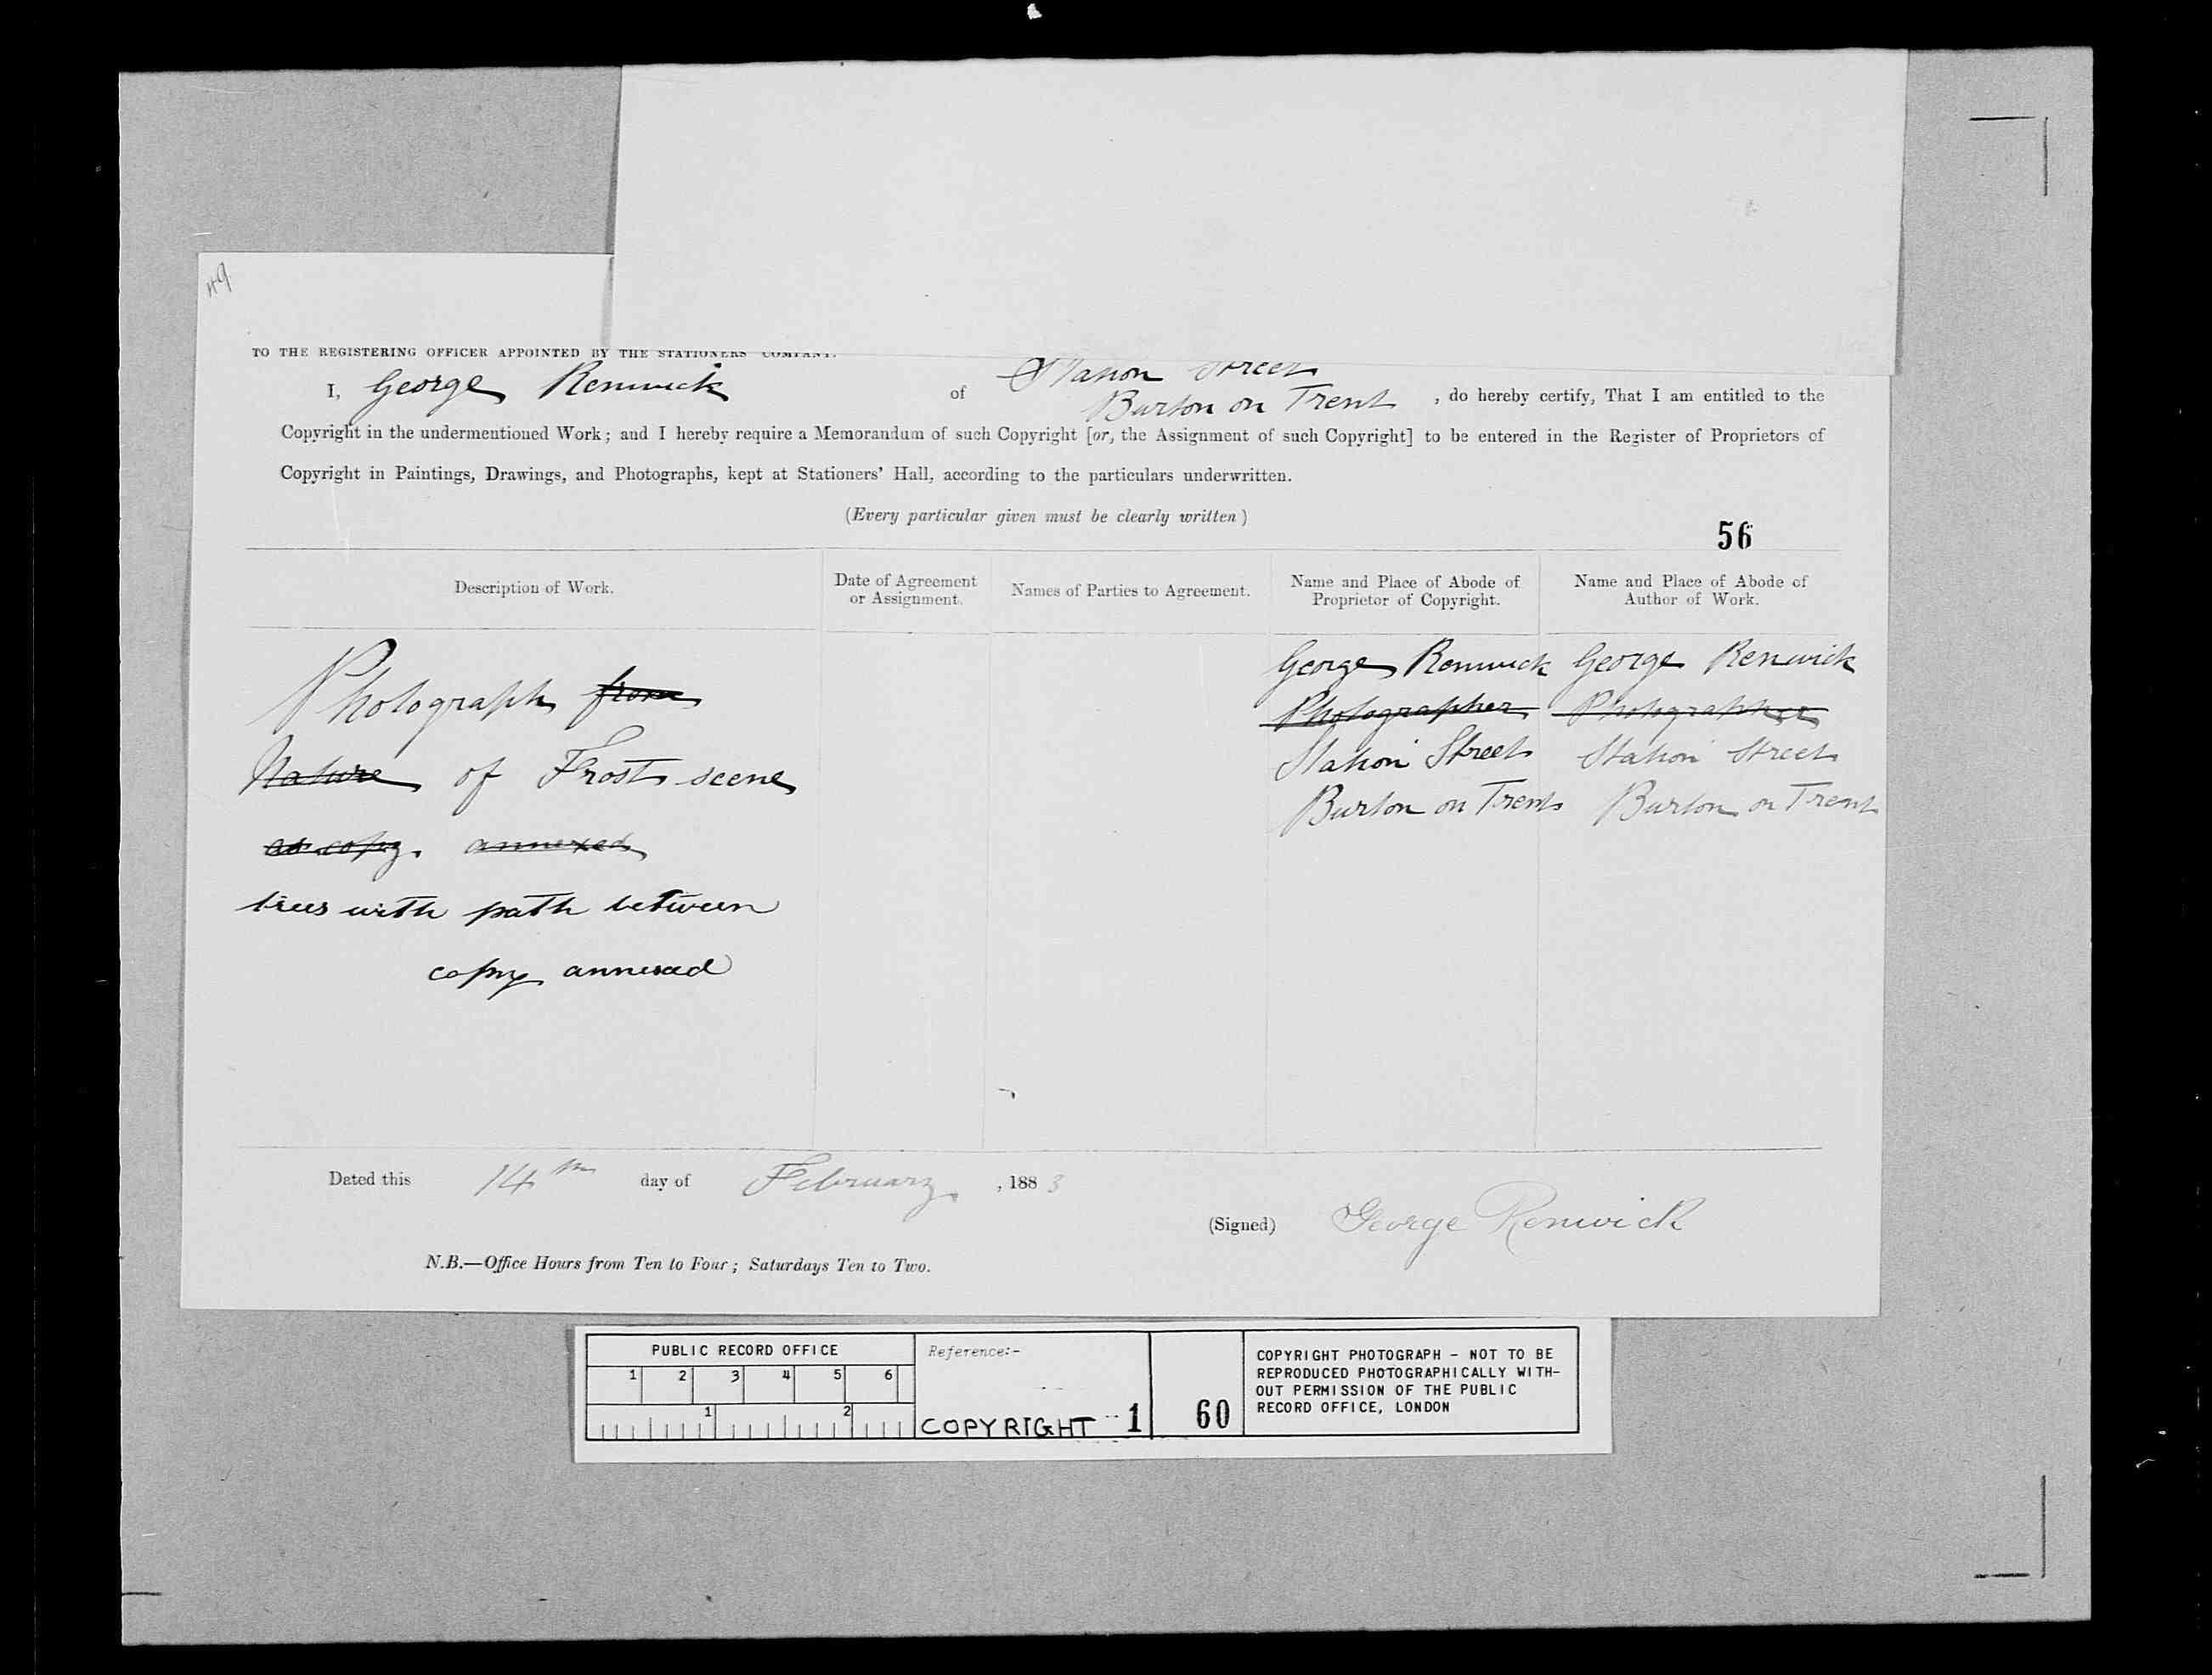 49
TO THE REGISTERING OFFICER APPOINTED BY THE STATIONERS COMPANY.
I, George Renwick of Station Street
Burton on Trent , do hereby certify, That I am entitled to the
Copyright in the undermentioned Work; and I hereby require a Memorandum of such Copyright [or, the Assignment of such Copyright] to be entered in the Register of Proprietors of
Copyright in Paintings, Drawings, and Photographs, kept at Stationers' Hall, according to the particulars underwritten.
(Every particular given must be clearly written)
56
Description of Work.
Date of Agreement
or Assignment.
Names of Parties to Agreement.
Name and Place of Abode of
Proprietor of Copyright.
Name and Place of Abode of
Author of Work.
Photograph from
Nature of Frost scene
as copy. annexed
trees with path between
copy annexed
George Renwick
Photographer
Station Street
Burton on Trent
George Renwick
Photographer
Station Street
Burton on Trent
Dated this 14th day of February , 1883
(Signed) George Renwick
N.B.—Office Hours from Ten to Four; Saturdays Ten to Two.
PUBLIC RECORD OFFICE
1 2 3 4 5 6
1 2
Reference:-
COPYRIGHT 1
60
COPYRIGHT PHOTOGRAPH - NOT TO BE
REPRODUCED PHOTOGRAPHICALLY WITH-
OUT PERMISSION OF THE PUBLIC
RECORD OFFICE, LONDON